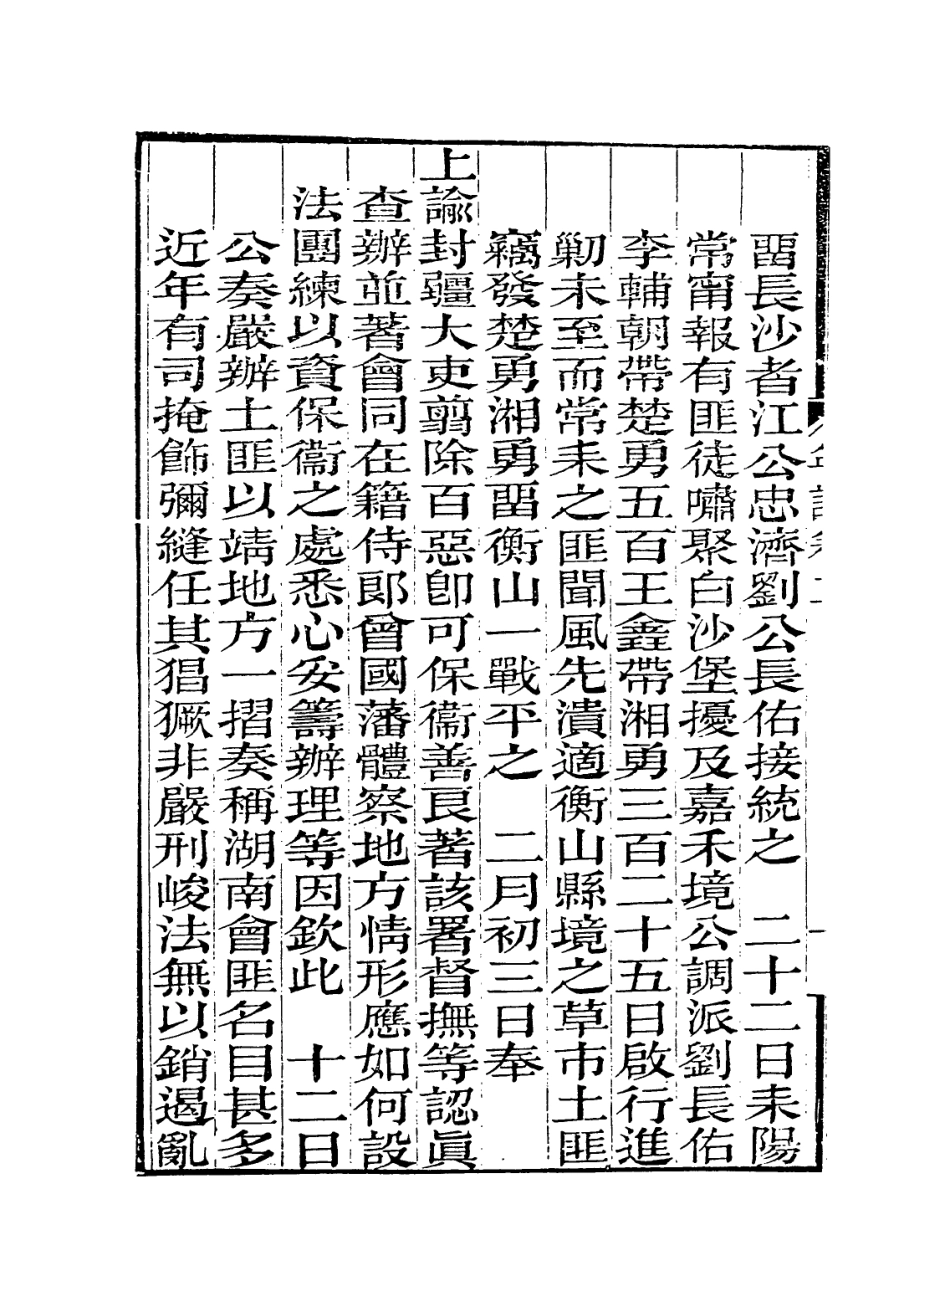 畱長沙者江公忠濟劉公長佑接統之　二十二日耒陽
常甯報有匪徒嘯聚白沙堡擾及嘉禾境公調派劉長佑
李輔朝帶楚勇五百王鑫帶湘勇三百二十五日啟行進
勦未至而常耒之匪聞風先潰適衡山縣境之草市土匪
竊發楚勇湘勇畱衡山一戰平之　二月初三日奉
上諭封疆大吏翦除百惡卽可保衞善良著該署督撫等認眞
查辦並著會同在籍侍郞曾國藩體察地方情形應如何設
法團練以資保衞之處悉心妥籌辦理等因欽此　十二日
公奏嚴辦土匪以靖地方一摺奏稱湖南會匪名目甚多
近年有司掩飾彌縫任其猖獗非嚴刑峻法無以銷遏亂